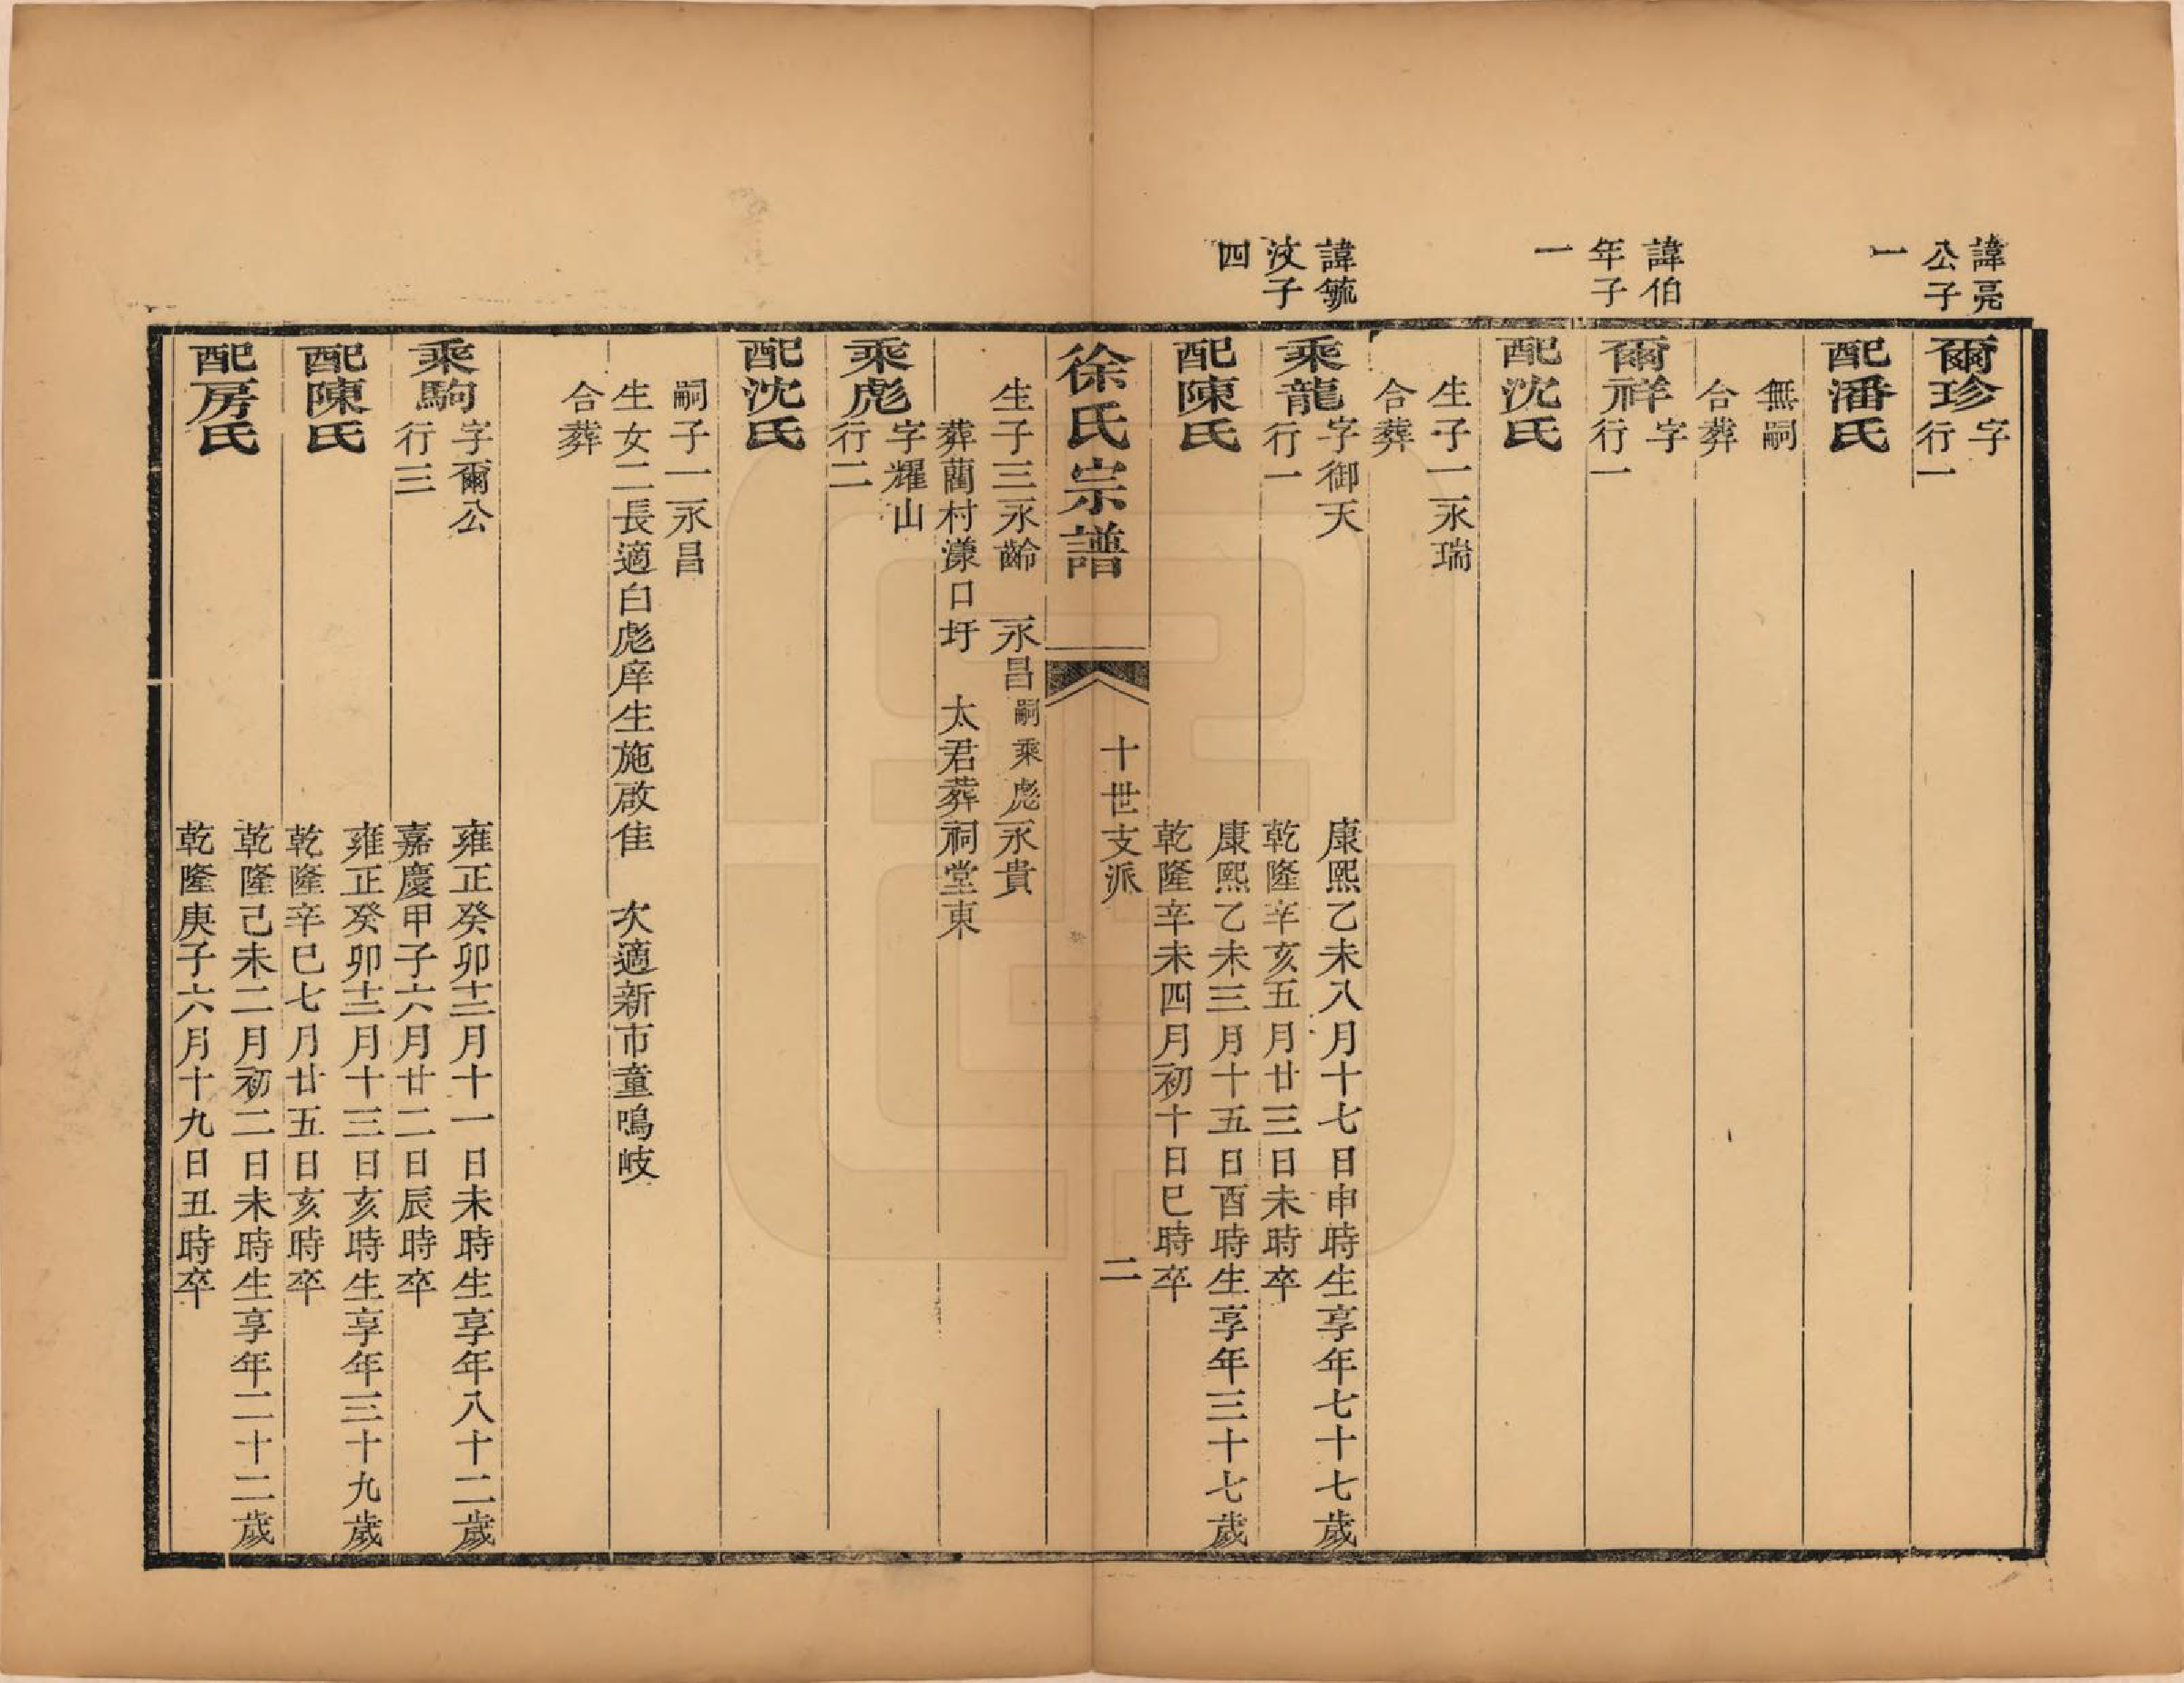 諱亮
公子
一
爾珍字
行一
配潘氏
無嗣
合葬
諱伯
年子
一
爾祥字
行一
配沈氏
生子一永瑞
合葬
諱毓
汶子
四
乘龍字御天 康熙乙未八月十七日申時生享年七十七歲
行一 乾隆辛亥五月廿三日未時卒
配陳氏 康熙乙未三月十五日酉時生享年三十七歲
乾隆辛未四月初十日巳時卒
徐氏宗譜 十世支派 二
生子三永齡 永昌嗣乘彪永貴
葬藺村漾口圩 太君葬祠堂東
乘彪字耀山
行二
配沈氏
嗣子一永昌
生女二長適白彪庠生施啟佳 次適新市童鳴岐
合葬
乘駒字爾公 雍正癸卯十二月十一日未時生享年八十二歲
行三 嘉慶甲子六月廿二日辰時卒
配陳氏 雍正癸卯十二月十三日亥時生享年三十九歲
乾隆辛巳七月廿五日亥時卒
配房氏 乾隆己未二月初二日未時生享年二十二歲
乾隆庚子六月十九日丑時卒